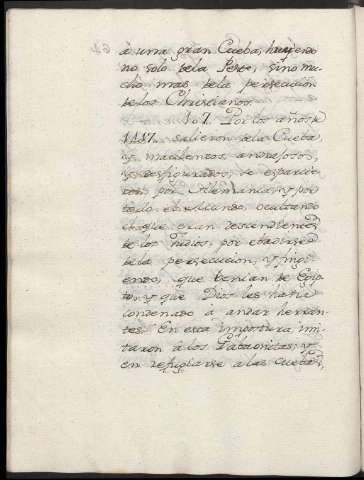 á una gran Cueba, huyendo
no solo dela Peste, sino mu-
cho mas dela persecucion
delos Christianos.
107. Por los años de
1417. salieron dela Cueba
y macilentos, andrajosos,
y desfigurados, se esparcie-
ron por Alemania, y por
todo el Mundo, ocultando
el que eran descendientes
de los Judios, por evadirse
dela persecucion, y impo-
niendo, que venian de Egip-
to, y que Dios les havia
condenado á andar herran-
tes. En esta impostura imi-
taron á los y
en refugiarse a las Cuebas,